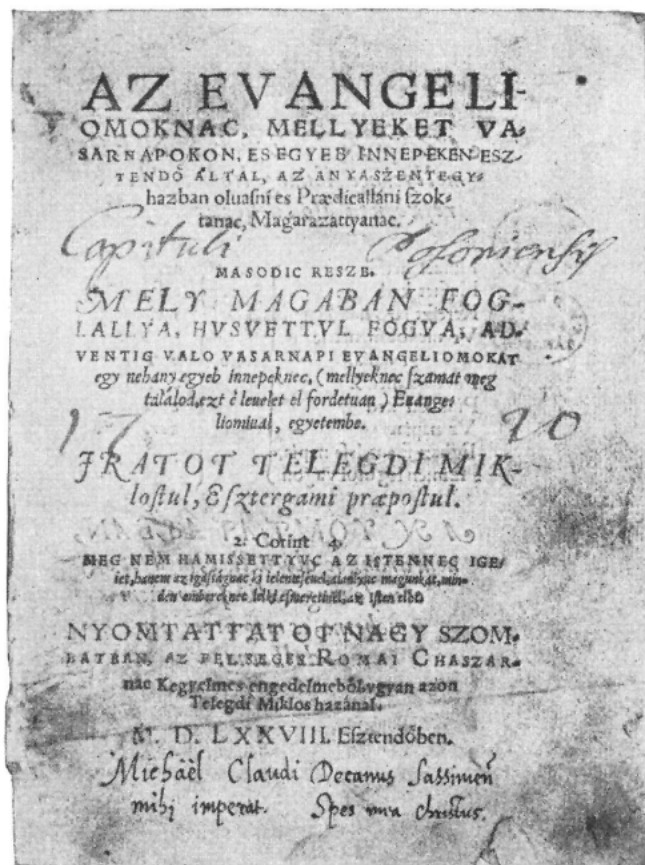 AZ EVANGELI-
OMOKNAC, MELLYEKET VA-
SARNAPOKON, ES EGYEB INNEPEKEN ESZ-
TENDŐ ÁLTAL, AZ ANYASZENTEGY-
hazban oluaſni es Prædicallani ſzok-
tanac, Magarazattyanac.
Capituli Poſoniensis
MASODIC RESZE.
MELY MAGABAN FOG-
LALLYA, HVSVETTVL FOGVA, AD-
VENTIG VALO VASARNAPI EVANGELIOMOKAT
egy nehany egyeb innepeknec, (mellyeknec ſzamat meg
talalod, ezt è leuelet el fordetuan) Euange-
liomiual, egyetembe.
17 90
IRATOT TELEGDI MIK-
loſtul, Eſztergami præpoſtul.
2. Corint 4.
MEG NEM HAMISSETTYVC AZ ISTENNEC IGE-
iet, hanem az igaſságnac ki ielenteſéuel, magunkat, min-
den embereknec lelki eſmeretinél, az Iſten előt.
NYOMTATTATOT NAGY SZOM-
BATBAN, AZ FELSEGES ROMAI CHASZAR-
nac Kegyelmes engedelmeből, vgyan azon
Telegdi Miklos hazánál.
M. D. LXXVIII. Eſztendőben.
Michaël Claudi Decanus Saſſinien̄
mihj imperat. Spes mea Christus.